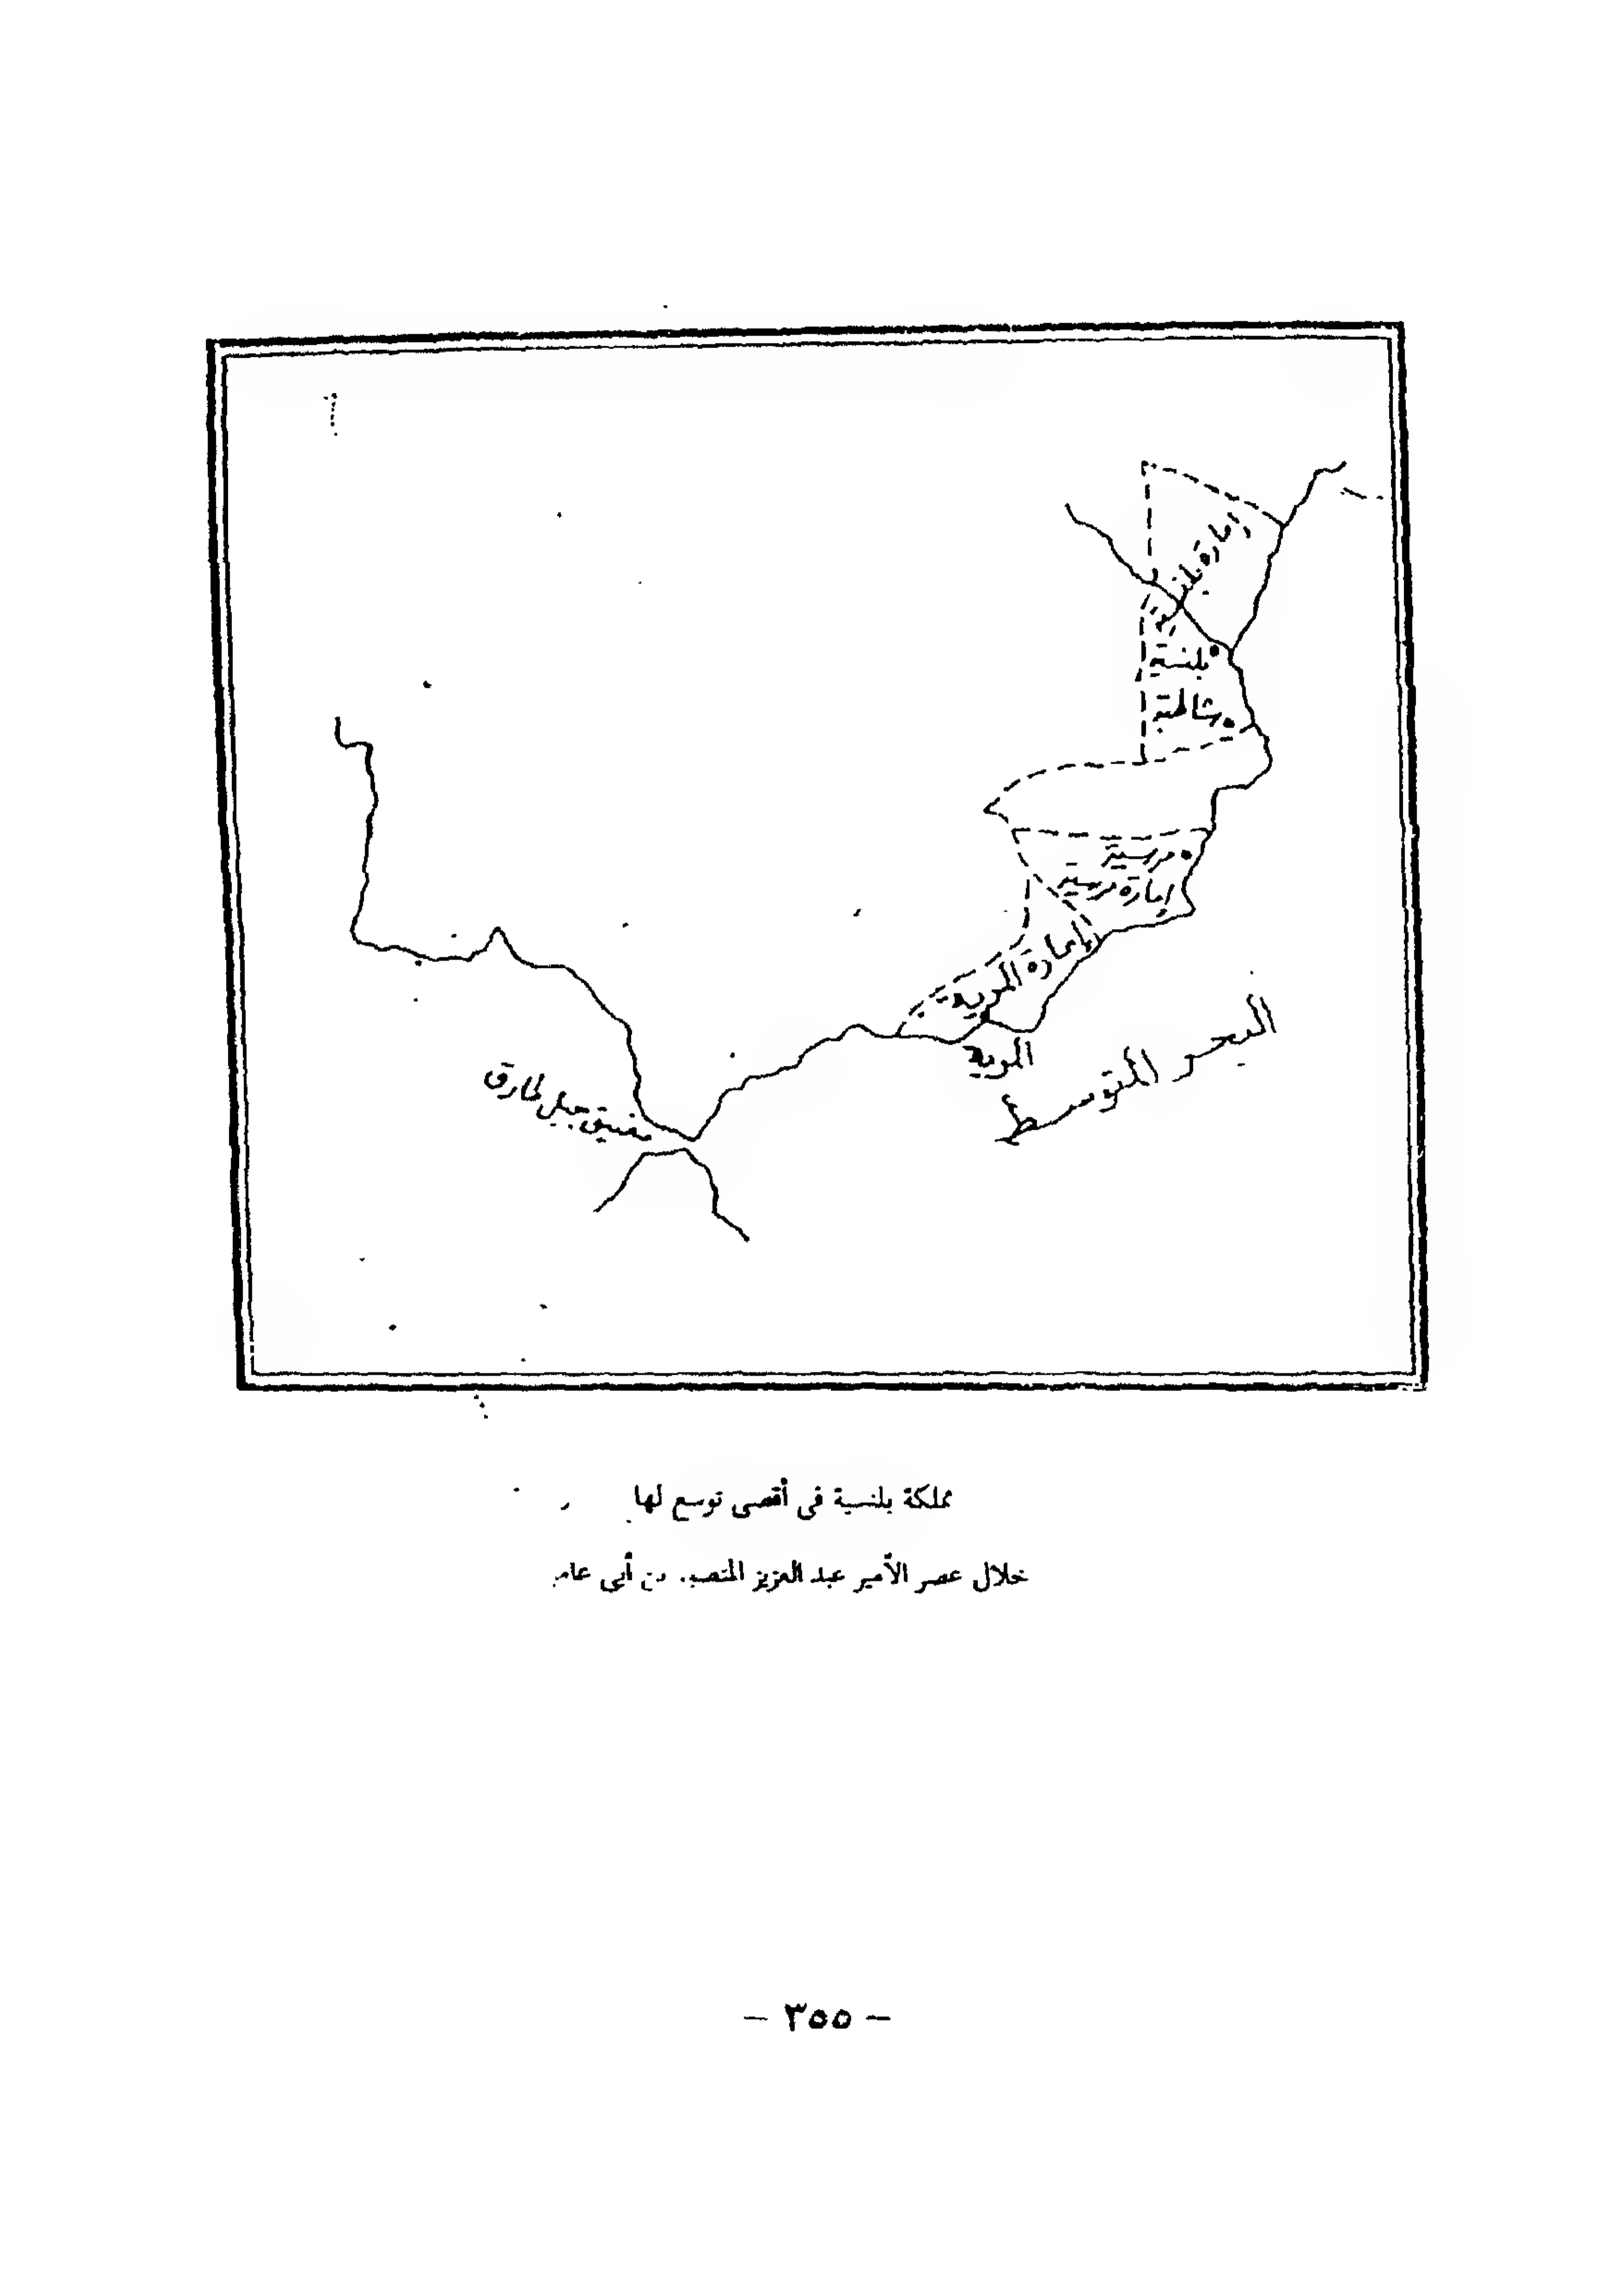 إمارة بلنسية
بلنسية
شاطبة
مرسية
إمارة مرسية
إمارة المرية
المرية
البحر المتوسط
مضيق جبل طارق
مملكة بلنسية في أقصى توسع لها
خلال عصر الأمير عبد العزيز أبي
- ٣٥٥ -